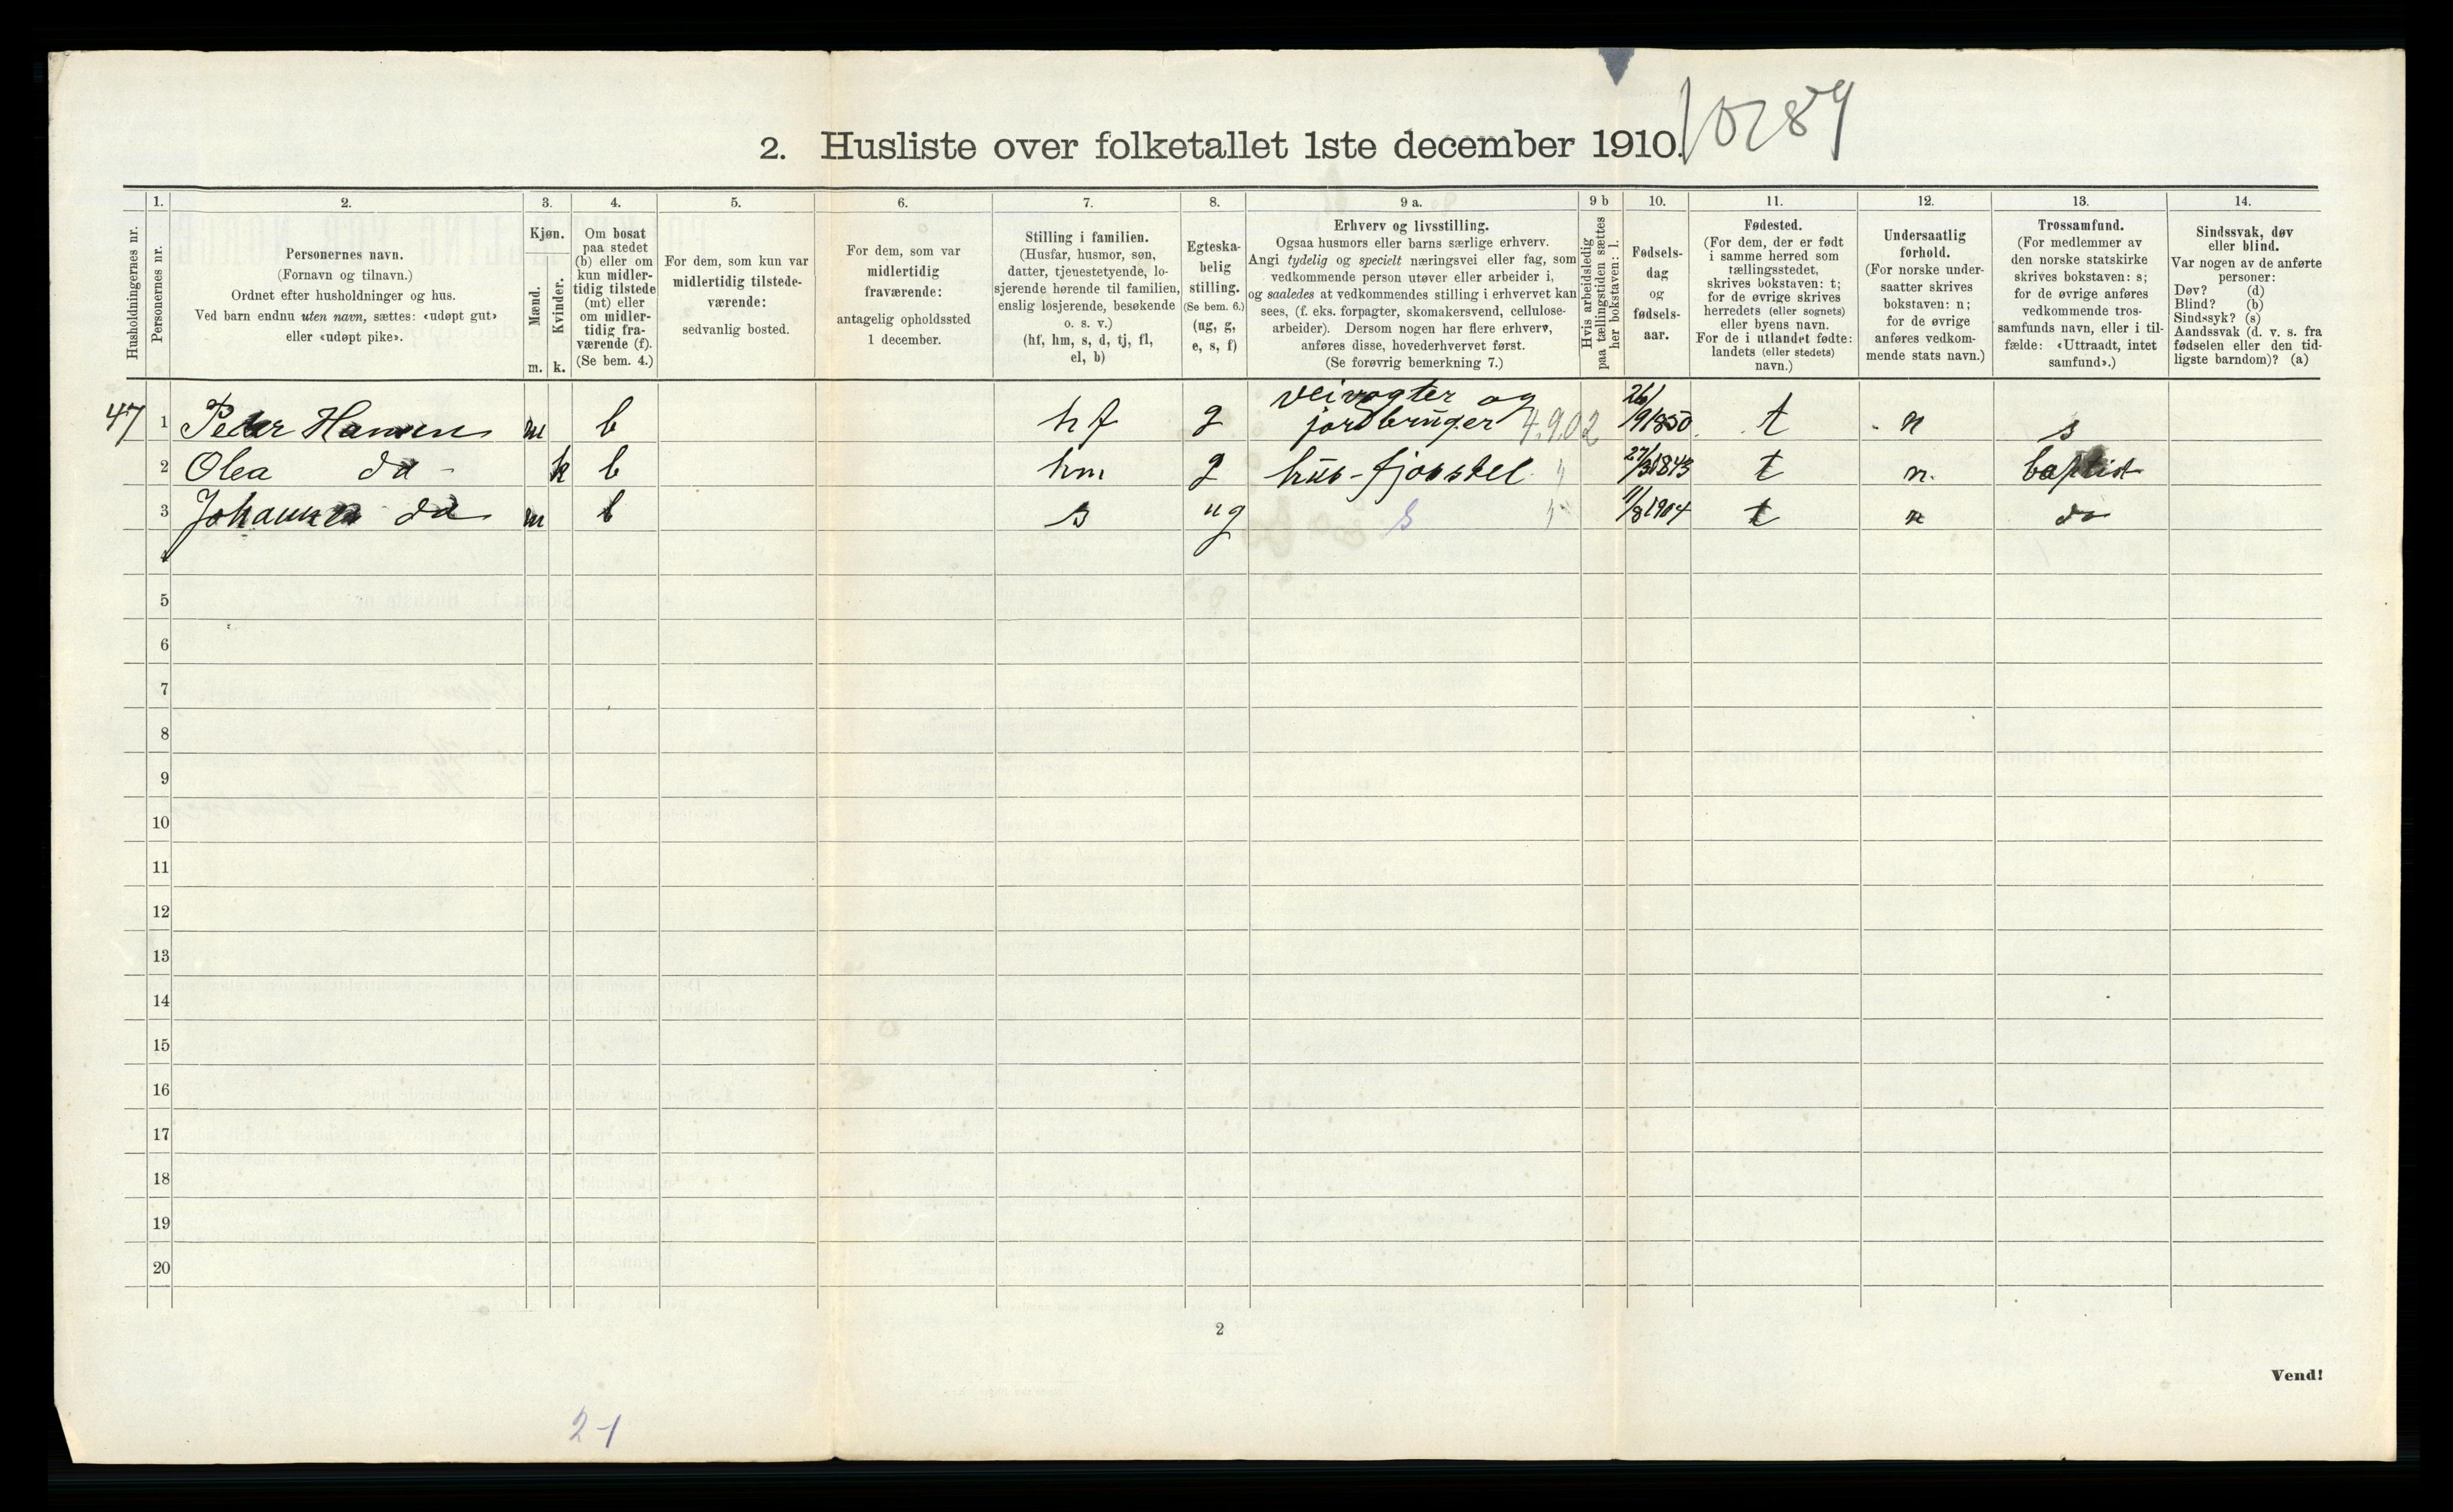 10289
2. Husliste over folketallet 1ste december 1910.
Husholdningernes nr.
1.
Personernes nr.
2.
Personernes navn.
(Fornavn og tilnavn.)
Ordnet efter husholdninger og hus.
Ved barn endnu uten navn, sættes: «udøpt gut»
eller «udøpt pike».
3.
Kjøn.
Mænd.
Kvinder.
m. k.
4.
Om bosat
paa stedet
(b) eller om
kun midler-
tidig tilstede
(mt) eller
om midler-
tidig fra-
værende (f).
(Se bem. 4.)
5.
For dem, som kun var
midlertidig tilstede-
værende:
sedvanlig bosted.
6.
For dem, som var
midlertidig
fraværende:
antagelig opholdssted
1 december.
7.
Stilling i familien.
(Husfar, husmor, søn,
datter, tjenestetyende, lo-
sjerende hørende til familien,
enslig losjerende, besøkende
o. s. v.)
(hf, hm, s, d, tj, fl,
el, b)
8.
Egteska-
belig
stilling.
(Se bem. 6.)
(ug, g,
e, s, f)
9 a.
Erhverv og livsstilling.
Ogsaa husmors eller barns særlige erhverv.
Angi tydelig og specielt næringsvei eller fag, som
vedkommende person utøver eller arbeider i,
og saaledes at vedkommendes stilling i erhvervet kan
sees, (f. eks. forpagter, skomakersvend, cellulose-
arbeider). Dersom nogen har flere erhverv,
anføres disse, hovederhvervet først.
(Se forøvrig bemerkning 7.)
9 b
Hvis arbeidsledig
paa tællingstiden sættes
her bokstaven: l.
10.
Fødsels-
dag
og
fødsels-
aar.
11.
Fødested.
(For dem, der er født
i samme herred som
tællingsstedet,
skrives bokstaven: t;
for de øvrige skrives
herredets (eller sognets)
eller byens navn.
For de i utlandet fødte:
landets (eller stedets)
navn.)
12.
Undersaatlig
forhold.
(For norske under-
saatter skrives
bokstaven: n;
for de øvrige
anføres vedkom-
mende stats navn.)
13.
Trossamfund.
(For medlemmer av
den norske statskirke
skrives bokstaven: s;
for de øvrige anføres
vedkommende tros-
samfunds navn, eller i til-
fælde: «Uttraadt, intet
samfund».)
14.
Sindssvak, døv
eller blind.
Var nogen av de anførte
personer:
Døv? (d)
Blind? (b)
Sindssyk? (s)
Aandssvak (d. v. s. fra
fødselen eller den tid-
ligste barndom)? (a)
47 1 Peder Hansen m b hf g veivogter og jordbruger 4.9.02 26/9 1850 t n s
2 Olea do - k b hm g hus-fjosstel 27/3 1843 t n. baptist
3 Johannes do m b s ug s 11/8 1904 t n do
4
5
6
7
8
9
10
11
12
13
14
15
16
17
18
19
20
2
Vend!
2-1